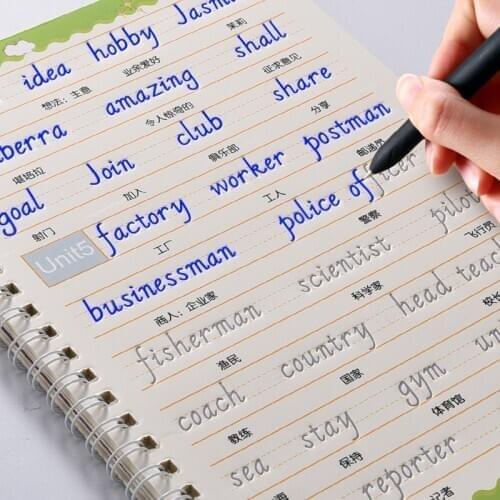 idea hobby Jasm
想法；主意 业余爱好 茉莉
berra amazing shall
堪培拉 令人惊奇的 征求意见
goal Join club share
射门 加入 俱乐部 分享
Unit5 factory worker postman
工厂 工人 邮递员
businessman police officer pilot
商人；企业家 警察 飞行员
fisherman scientist head teac
渔民 科学家 校长
coach country gym un
教练 国家 体育馆
sea stay reporter
保持 记者